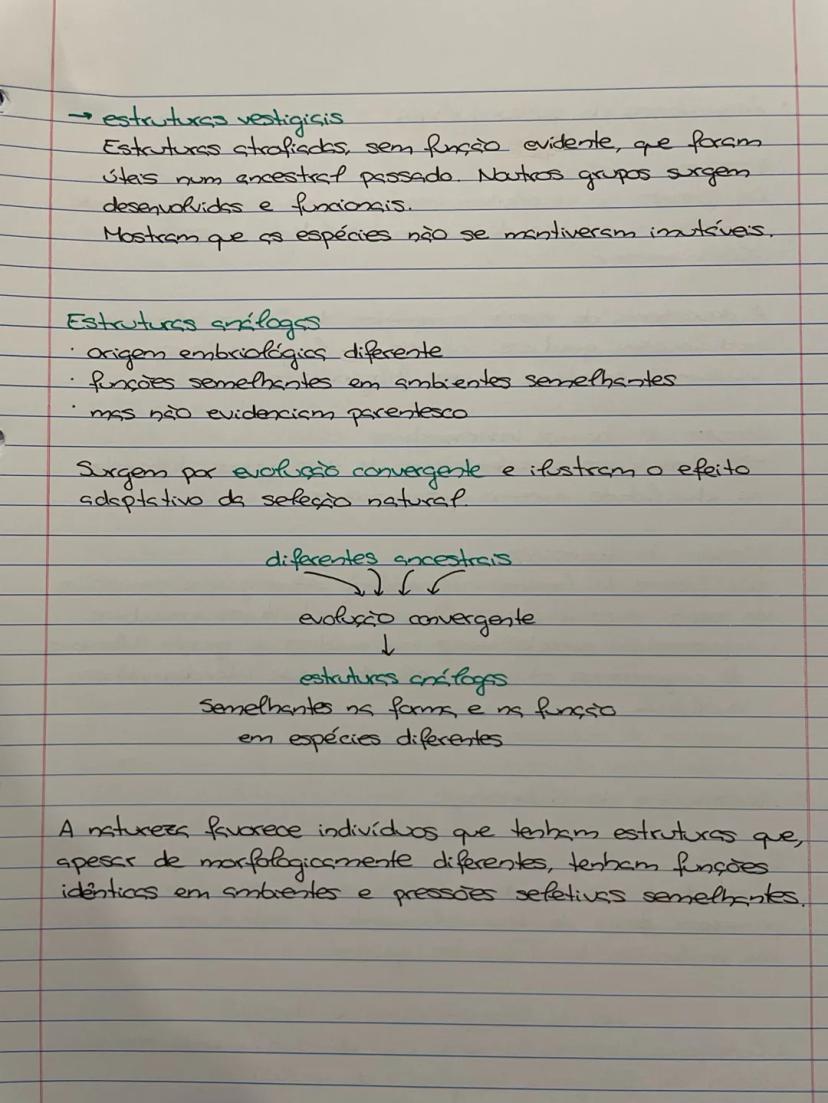 → estruturas vestigiais
Estruturas atrofiadas, sem função evidente, que foram
úteis num ancestral passado. Noutros grupos surgem
desenvolvidas e funcionais.
Mostram que as espécies não se mantiveram imutáveis.
Estruturas análogas
· origem embriológica diferente
· funções semelhantes em ambientes semelhantes
· mas não evidenciam parentesco
Surgem por evolução convergente e ilustram o efeito
adaptativo da seleção natural.
diferentes ancestrais
evolução convergente
↓
estruturas análogas
semelhantes na forma e na função
em espécies diferentes
A natureza favorece indivíduos que tenham estruturas que,
apesar de morfologicamente diferentes, tenham funções
idênticas em ambientes e pressões seletivas semelhantes.